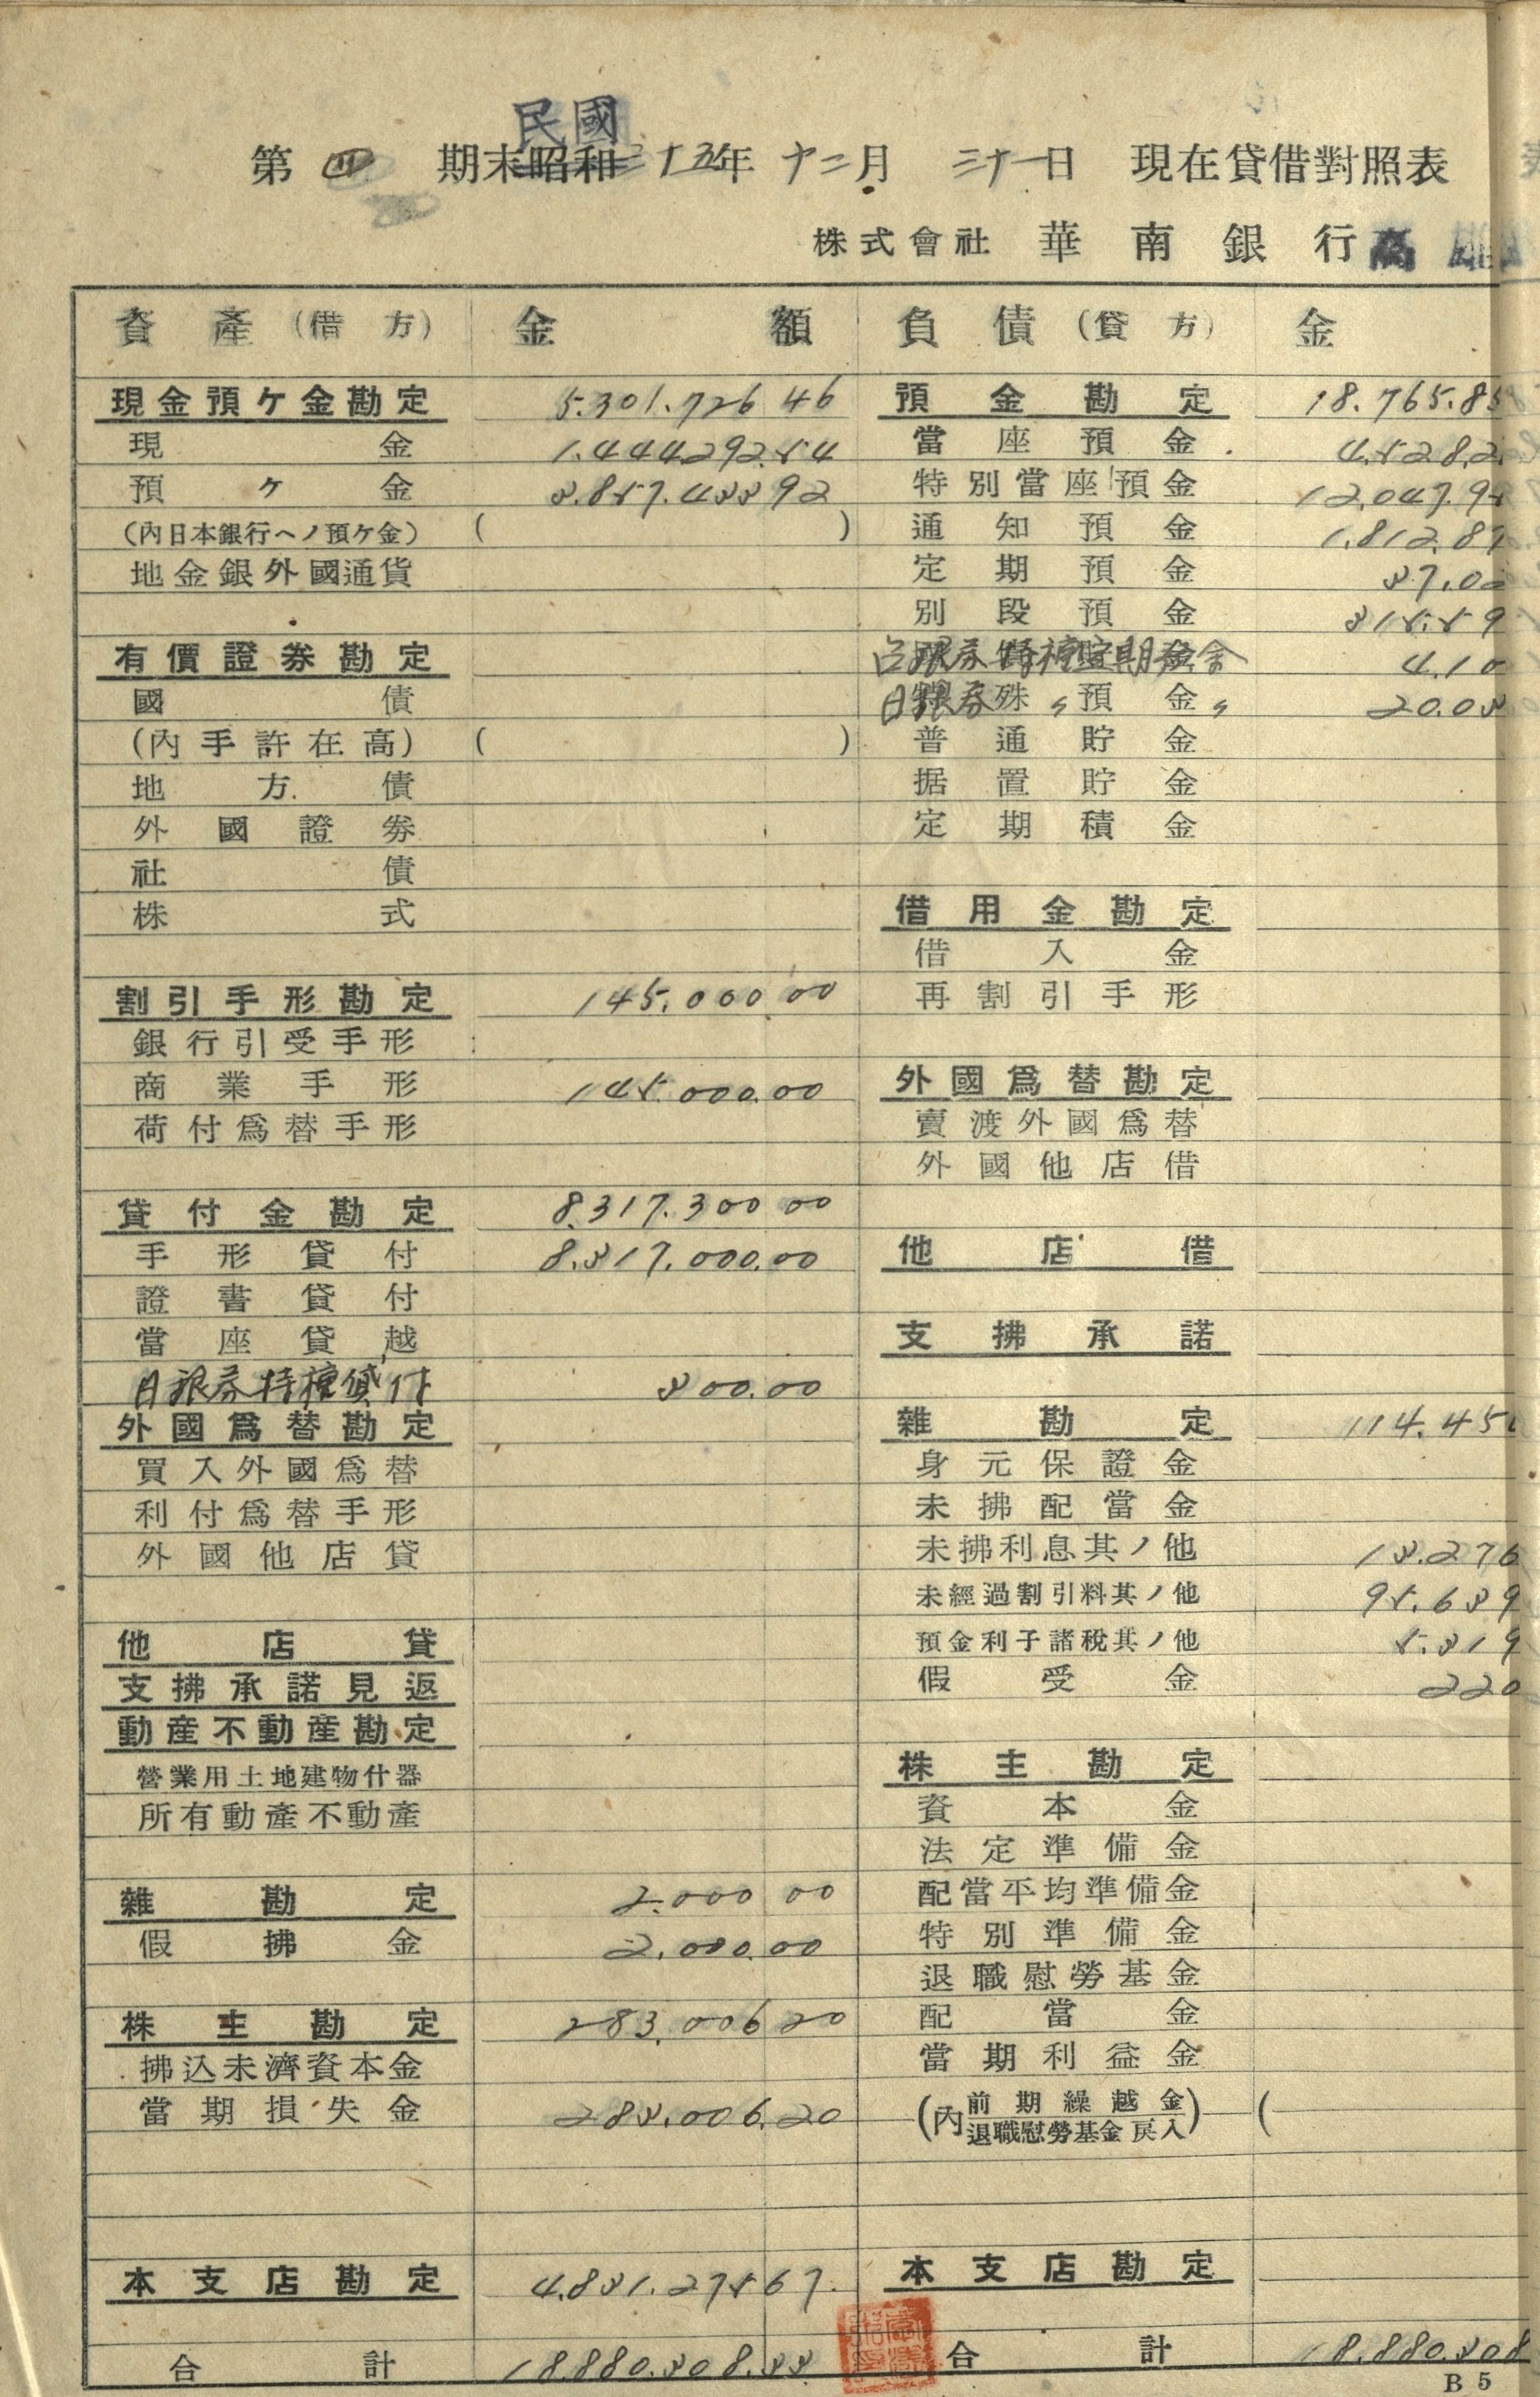 民國
第 四 期末昭和三十五年 十二月 三十一日 現在貸借對照表
株式會社 華南銀行高雄
資產(借方) 金額
現金預ケ金勘定 5.301.726 46
現金 1.444.292.54
預ケ金 3.857.433 92
(內日本銀行ヘノ預ケ金) ( )
地金銀外國通貨
有價證券勘定
國債
(內手許在高) ( )
地方債
外國證券
社債
株式
割引手形勘定 145.000 00
銀行引受手形
商業手形 145.000.00
荷付爲替手形
貸付金勘定 8.317.300 00
手形貸付 8.317.000.00
證書貸付
當座貸越
日銀券特種貸付 300.00
外國爲替勘定
買入外國爲替
利付爲替手形
外國他店貸
他店貸
支拂承諾見返
動産不動産勘定
營業用土地建物什器
所有動產不動產
雜勘定 2.000 00
假拂金 2.000.00
株主勘定 283.006 20
拂込未濟資本金
當期損失金 283.006.20
本支店勘定 4.831.275 67
合計 18.880.308.33
負債(貸方) 金
預金勘定 18.765.85
當座預金 4.528.2
特別當座預金 12.047.95
通知預金 1.812.87
定期預金 37.0
別段預金 315.59
4.10
日銀券 〃 預金 〃 20.03
普通貯金
据置貯金
定期積金
借用金勘定
借入金
再割引手形
外國爲替勘定
賣渡外國爲替
外國他店借
他店借
支拂承諾
雜勘定 114.45
身元保證金
未拂配當金
未拂利息其ノ他 13.276
未經過割引料其ノ他 95.639
預金利子諸稅其ノ他 5.319
假受金 220
株主勘定
資本金
法定準備金
配當平均準備金
特別準備金
退職慰勞基金
配當金
當期利益金
(內 前期繰越金 退職慰勞基金戾入) (
本支店勘定
合計 18.880.308
B 5